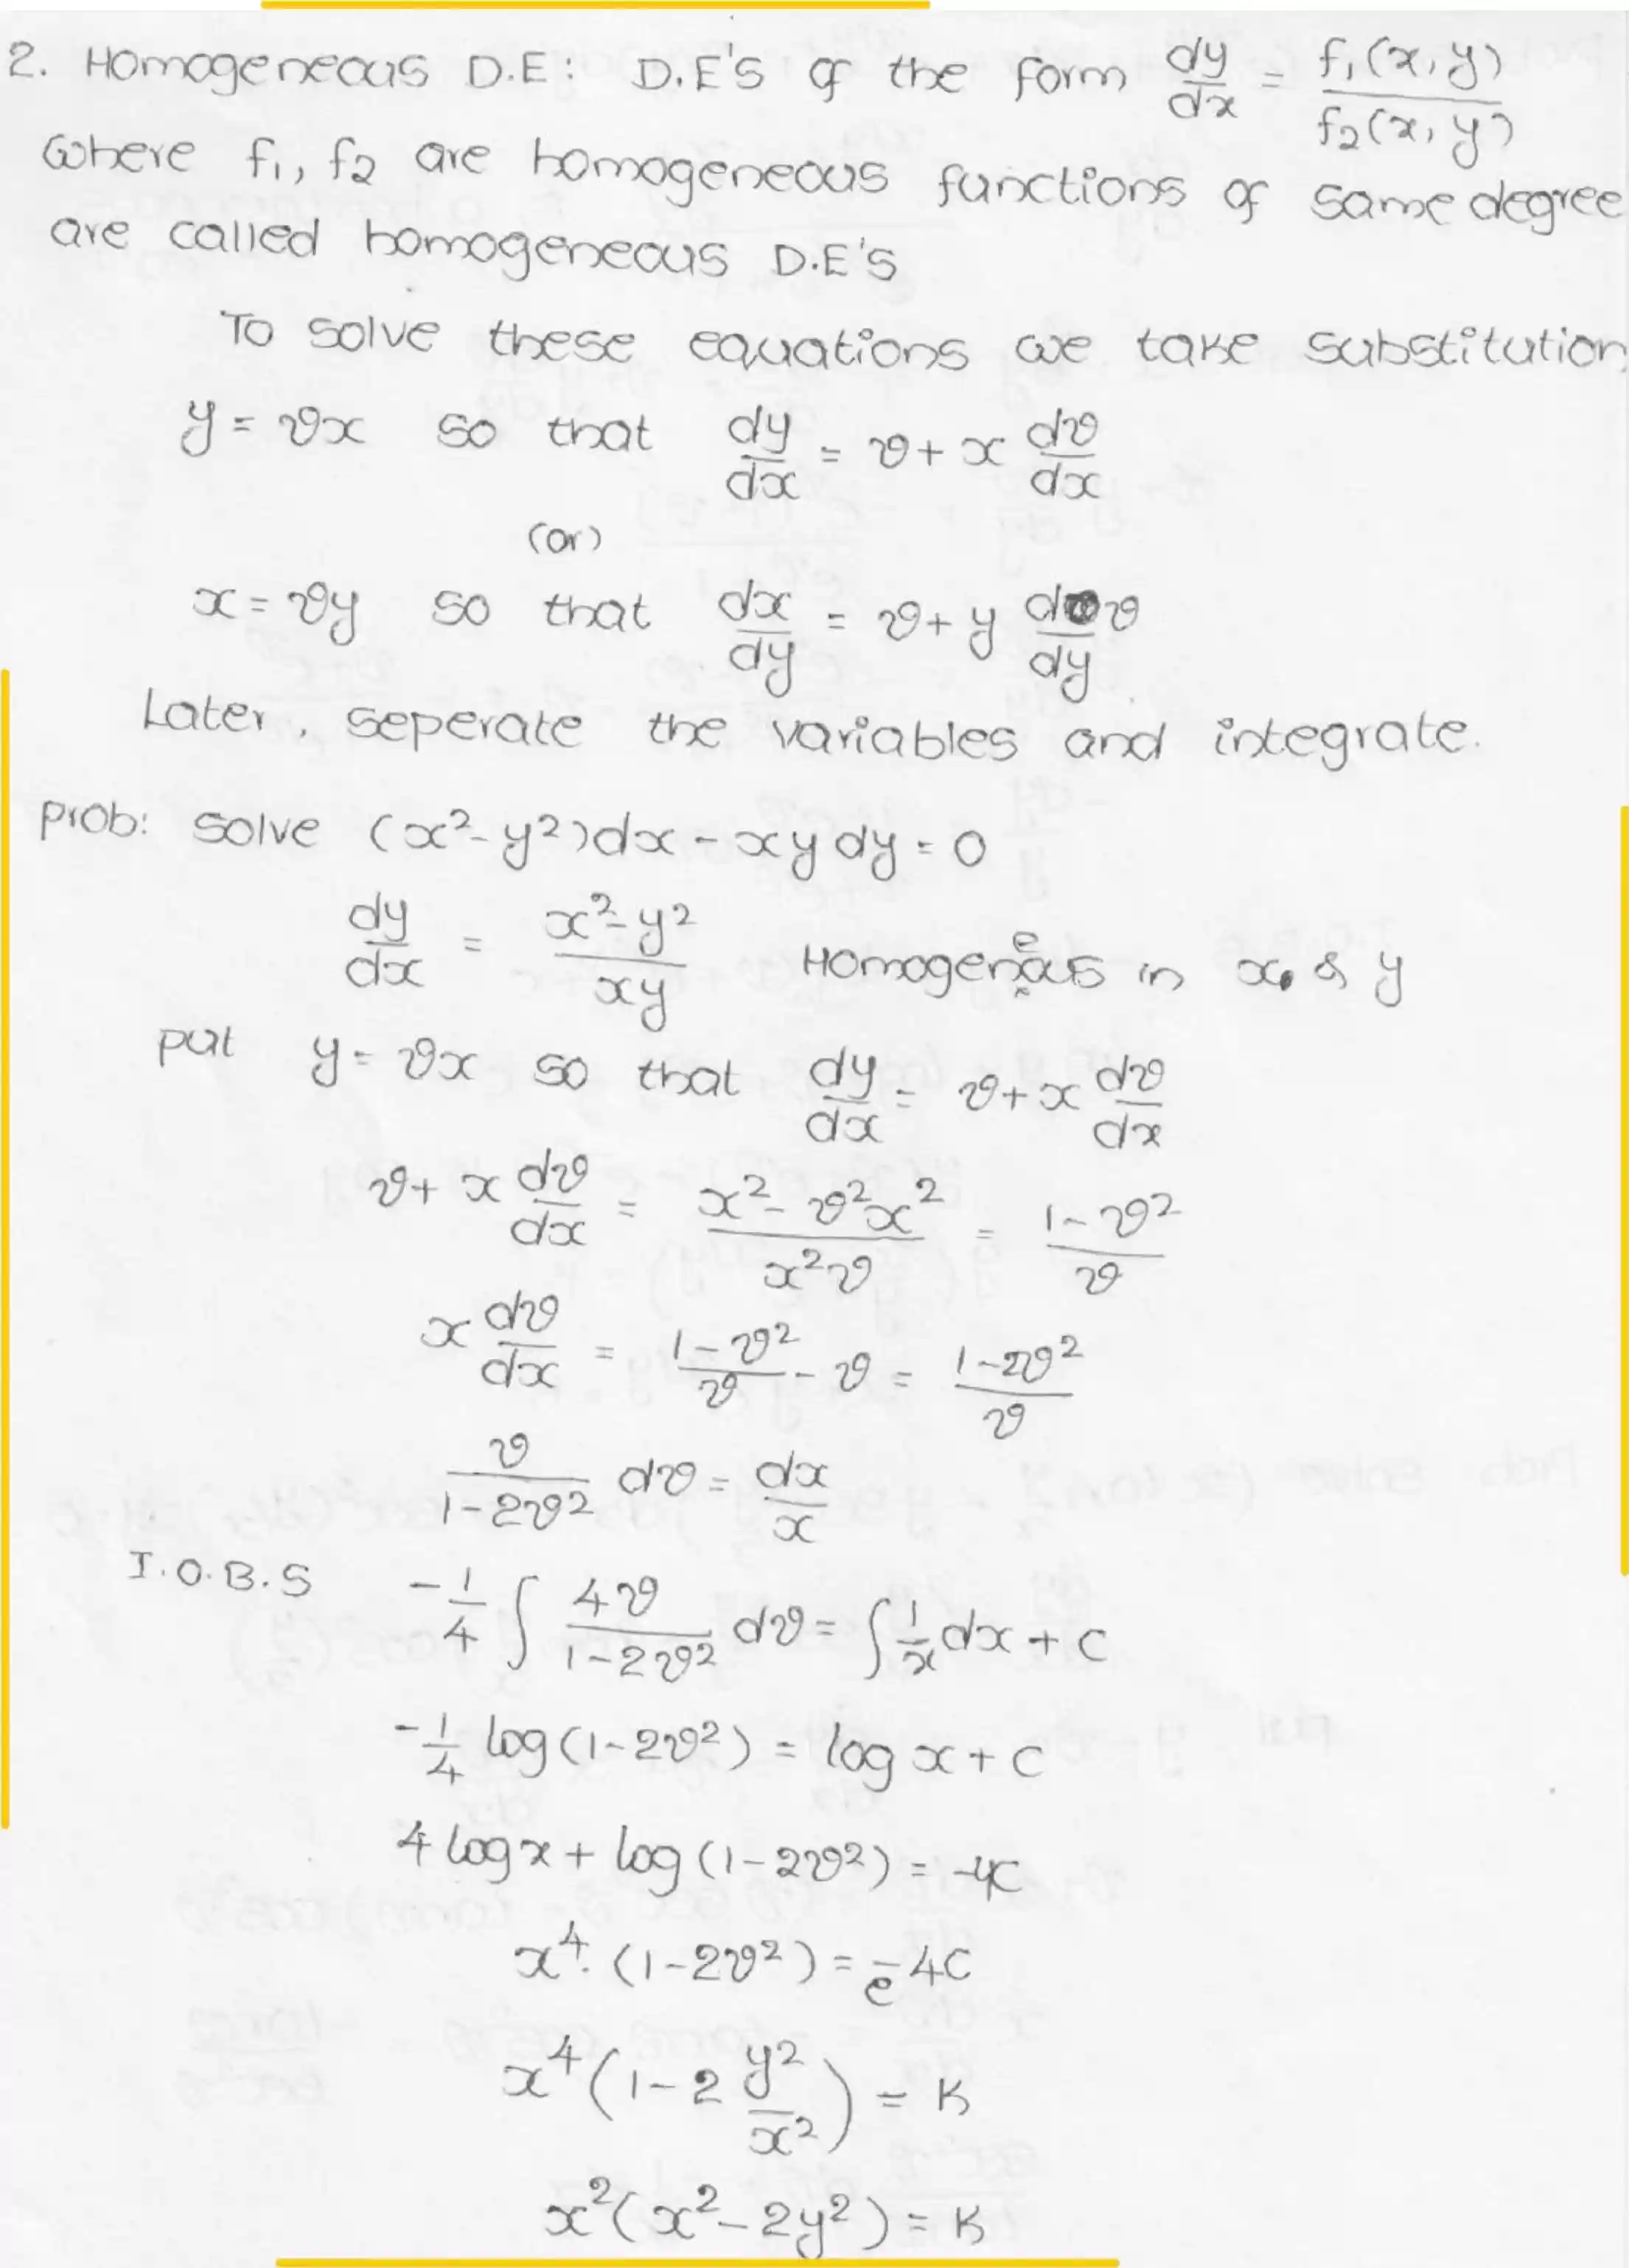 2. Homogeneous D.E: D.E's of the form dy/dx = f₁(x,y)/f₂(x,y)
where f₁, f₂ are homogeneous functions of same degree
are called homogeneous D.E's
To solve these equations we take substitution,
y = vx so that dy/dx = v + x dv/dx
(or)
x = vy so that dx/dy = v + y dv/dy
Later, seperate the variables and integrate.
Prob: Solve (x² - y²)dx - xy dy = 0
dy/dx = (x² - y²)/(xy) Homogeneous in x & y
put y = vx so that dy/dx = v + x dv/dx
v + x dv/dx = (x² - v²x²)/(x²v) = (1 - v²)/v
x dv/dx = (1 - v²)/v - v = (1 - 2v²)/v
v/(1 - 2v²) dv = dx/x
I.O.B.S -1/4 ∫ 4v/(1 - 2v²) dv = ∫ 1/x dx + c
-1/4 log(1 - 2v²) = log x + c
4 log x + log(1 - 2v²) = -4c
x⁴. (1 - 2v²) = e^-4c
x⁴(1 - 2 y²/x²) = K
x²(x² - 2y²) = K